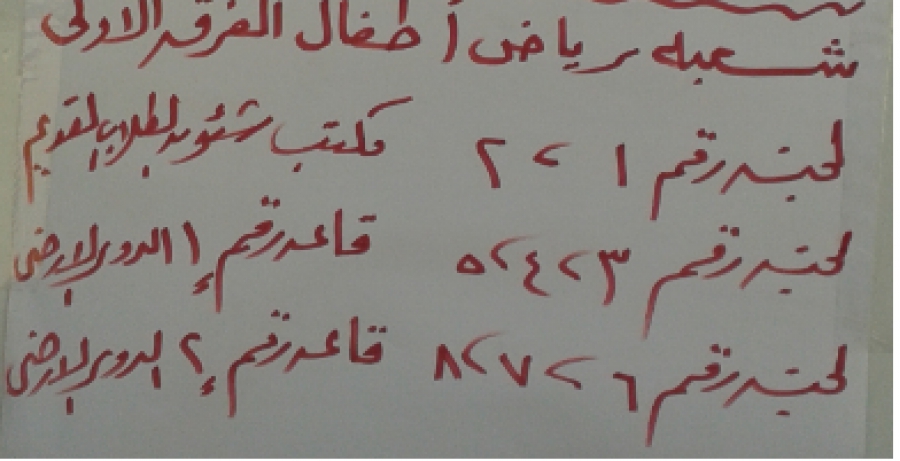 شعبه رياض أطفال الفرقه الاولى
لجنه رقم ١ > ٢ مكتب شئون الطلاب القديم
لجنه رقم ٣ > ٤ > ٥ قاعه رقم ١ الدور الارضى
لجنه رقم ٦ > ٧ > ٨ قاعه رقم ٢ الدور الارضى